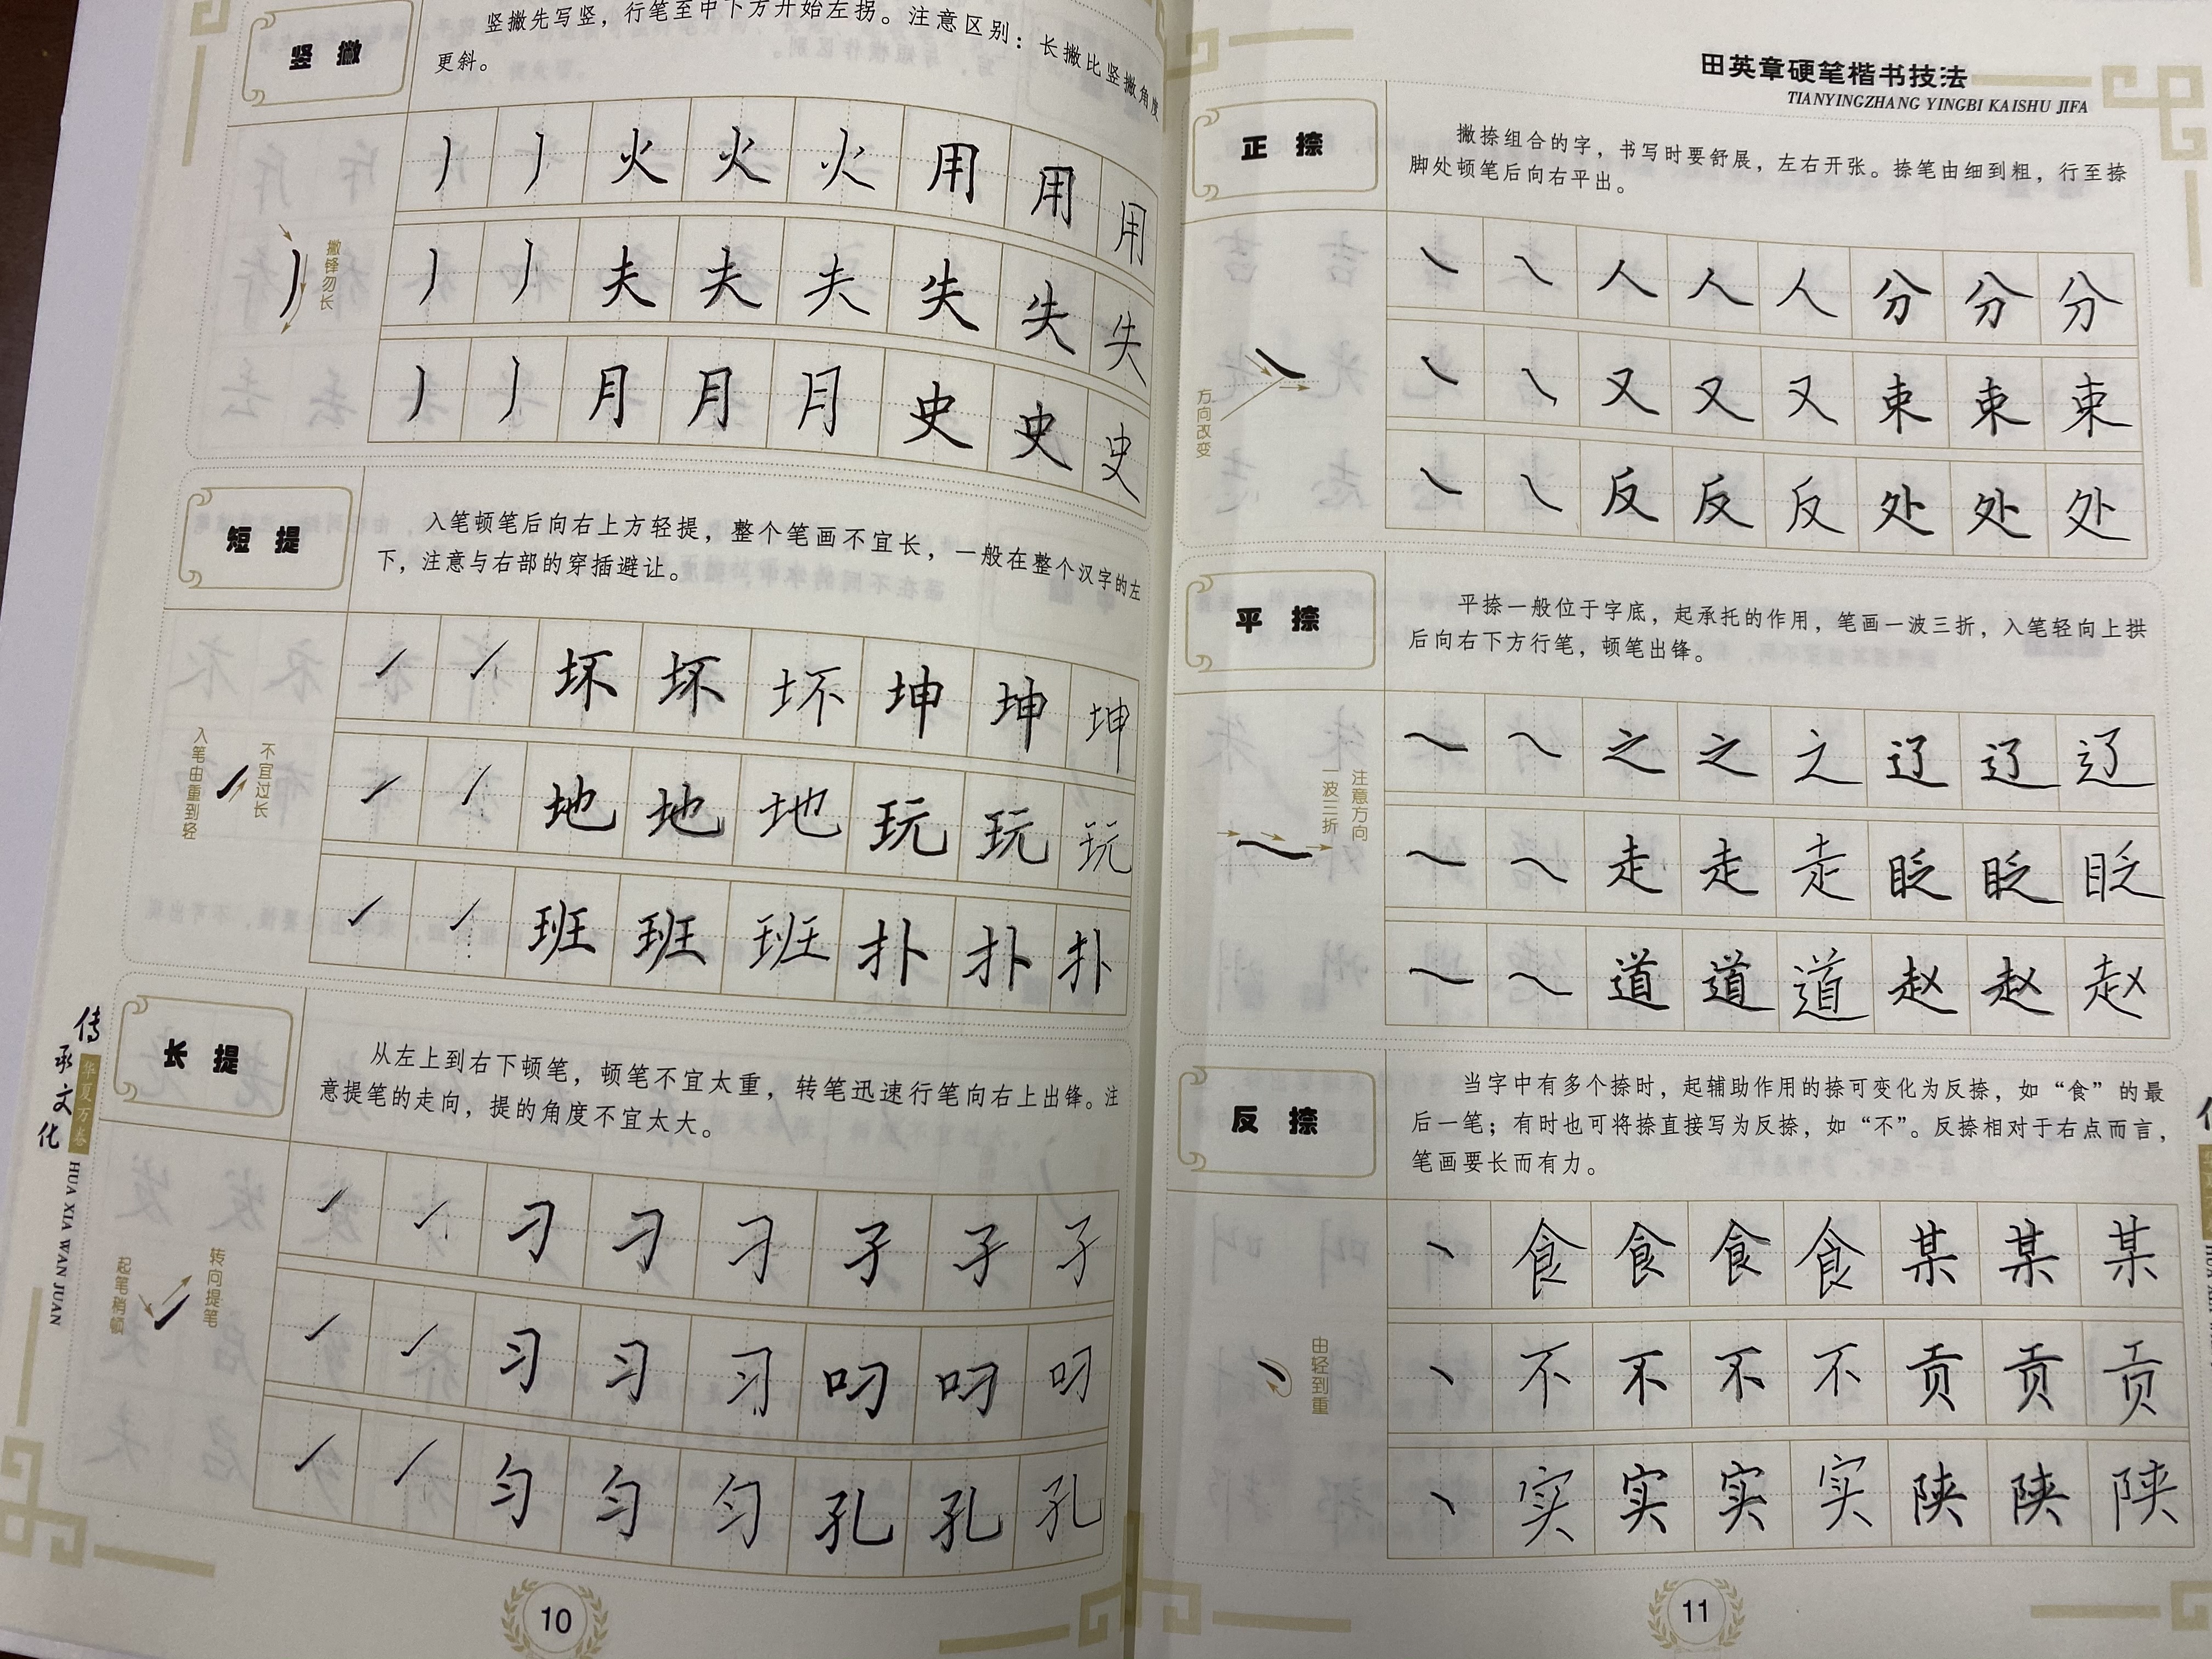 竖 撇
竖撇先写竖，行笔至中下方开始左拐。注意区别：长撇比竖撇角度
更斜。
撇锋勿长
丿 丿 火 火 火 用 用 用
丿 丿 夫 夫 夫 失 失 失
丿 丿 月 月 月 史 史 史
短 提
入笔顿笔后向右上方轻提，整个笔画不宜长，一般在整个汉字的左
下，注意与右部的穿插避让。
入笔由重到轻
不宜过长
㇀ ㇀ 坏 坏 坏 坤 坤 坤
㇀ ㇀ 地 地 地 玩 玩 玩
㇀ ㇀ 班 班 班 扑 扑 扑
长 提
从左上到右下顿笔，顿笔不宜太重，转笔迅速行笔向右上出锋。注
意提笔的走向，提的角度不宜太大。
起笔稍顿
转向提笔
㇀ ㇀ 刁 刁 刁 孑 孑 孑
㇀ ㇀ 习 习 习 叼 叼 叼
㇀ ㇀ 匀 匀 匀 孔 孔 孔
传承文化
华夏万卷
HUA XIA WAN JUAN
10
田英章硬笔楷书技法
TIANYINGZHANG YINGBI KAISHU JIFA
正 捺
撇捺组合的字，书写时要舒展，左右开张。捺笔由细到粗，行至捺
脚处顿笔后向右平出。
方向改变
㇏ ㇏ 人 人 人 分 分 分
㇏ ㇏ 又 又 又 束 束 束
㇏ ㇏ 反 反 反 处 处 处
平 捺
平捺一般位于字底，起承托的作用，笔画一波三折，入笔轻向上拱
后向右下方行笔，顿笔出锋。
注意方向
一波三折
㇏ ㇏ 之 之 之 辽 辽 辽
㇏ ㇏ 走 走 走 眨 眨 眨
㇏ ㇏ 道 道 道 赵 赵 赵
反 捺
当字中有多个捺时，起辅助作用的捺可变化为反捺，如“食”的最
后一笔；有时也可将捺直接写为反捺，如“不”。反捺相对于右点而言，
笔画要长而有力。
由轻到重
㇔ 食 食 食 食 某 某 某
㇔ 不 不 不 不 贡 贡 贡
㇔ 实 实 实 实 陕 陕 陕
11